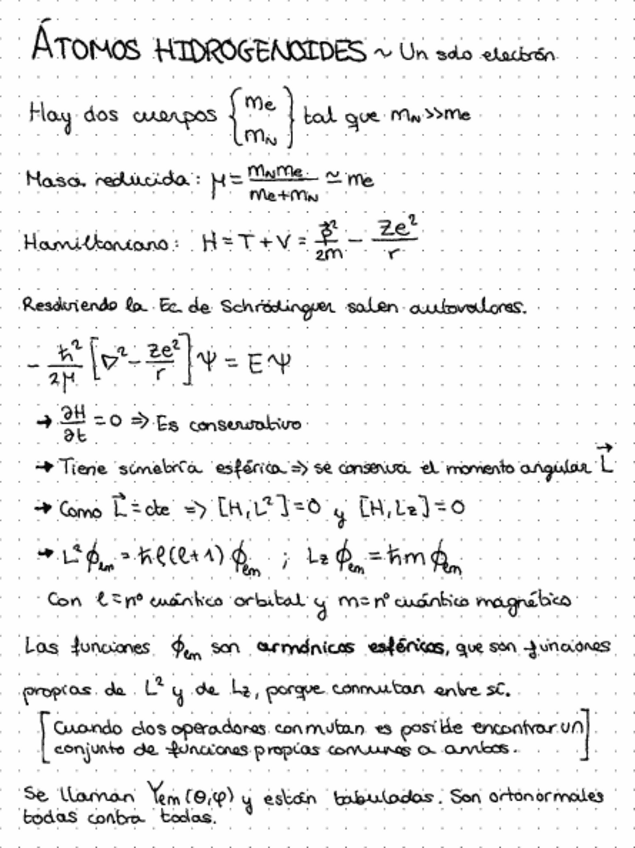 ÁTOMOS HIDROGENOIDES ~ Un solo electrón
Hay dos cuerpos {me mN} tal que mN >> me
Masa reducida: μ = mN me / me + mN ≃ me
Hamiltoniano: H = T + V = p⃗² / 2m - Ze² / r
Resolviendo la Ec. de Schrödinguer salen autovalores.
- ħ² / 2μ [∇² - Ze² / r] Ψ = E Ψ
→ ∂H / ∂t = 0 ⇒ Es conservativo
→ Tiene simetría esférica ⇒ se conserva el momento angular L⃗
→ Como L⃗ = cte ⇒ [H, L²] = 0 y [H, Lz] = 0
→ L² ϕℓm = ħℓ(ℓ+1) ϕℓm ; Lz ϕℓm = ħm ϕℓm
Con ℓ = nº cuántico orbital y m = nº cuántico magnético
Las funciones ϕℓm son armónicos esféricos, que son funciones
propias de L² y de Lz, porque conmutan entre sí.
[Cuando dos operadores conmutan es posible encontrar un
conjunto de funciones propias comunes a ambos.]
Se llaman Yℓm (θ,φ) y están tabuladas. Son ortonormales
todas contra todas.